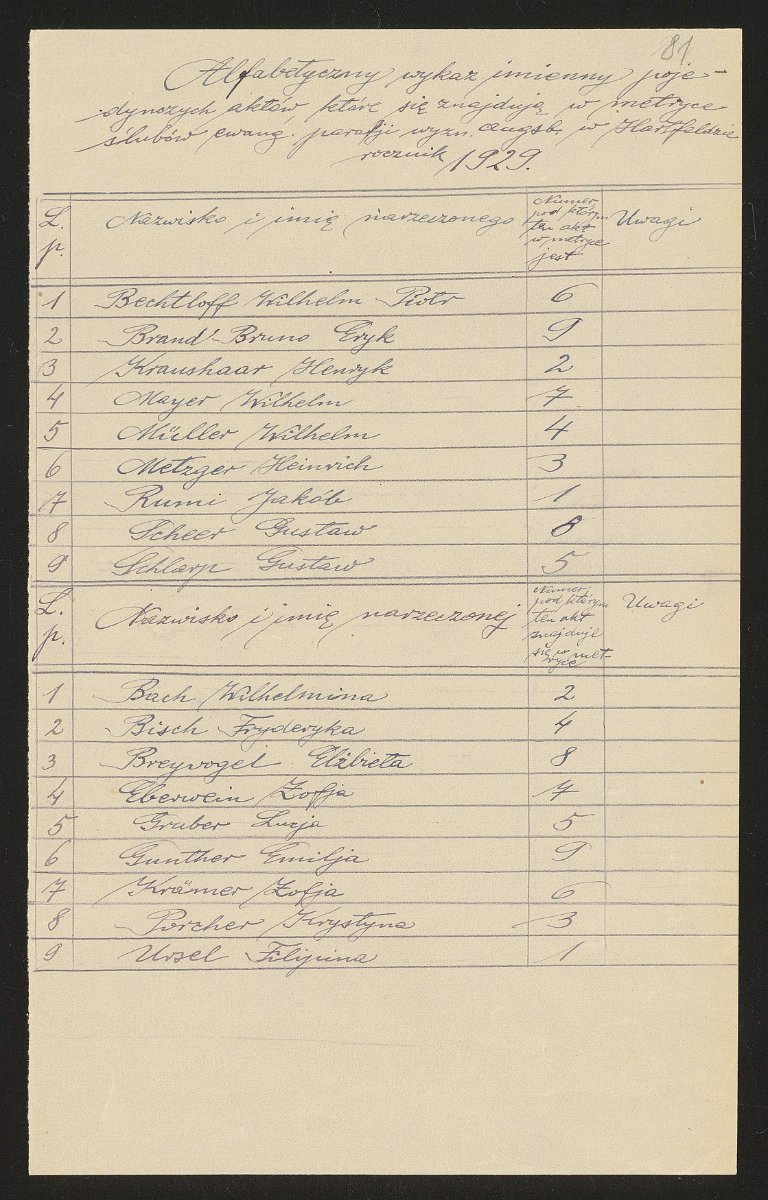 81
Alfabetyczny wykaz imienny poje-
dynczych aktów które się znajdują w metryce
ślubów ewang. parafji wyzn. augsb. w Hartfeldzie
rocznik 1929.
L. p. Nazwisko i imię narzeczonego Numer pod którym ten akt w metryce jest Uwagi
1 Bechtloff Wilhelm Piotr 6
2 Brand Bruno Eryk 9
3 Kraushaar Henryk 2
4 Mayer Wilhelm 7
5 Müller Wilhelm 4
6 Metzger Heinrich 3
7 Rumi Jakób 1
8 Scheer Gustaw 8
9 Schlarp Gustaw 5
L. p. Nazwisko i imię narzeczonej Numer pod którym ten akt znajduje się w metryce Uwagi
1 Bach Wilhelmina 2
2 Bisch Fryderyka 4
3 Breyvogel Elżbieta 8
4 Eberwein Zofja 7
5 Gruber Lucja 5
6 Gunther Emilja 9
7 Krämer Zofja 6
8 Porcher Krystyna 3
9 Ursel Filipina 1